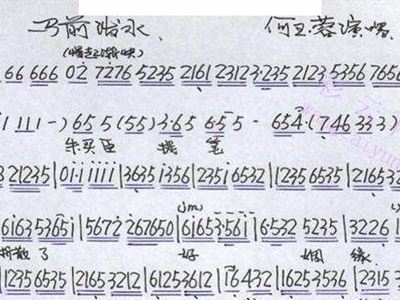 马前泼水 何玉蓉演唱
(慢起渐快)
66 666 02 7276 5235 2161 23123·235 2123 5356 7656
1 111-) 65 5 (55) 3·65 65·5 - 654 (746 333)
朱买臣 提 笔
3 21235 | 01·1 1111 | 3635 1356 | 2351 6532 | 1235 6535 | 2165 32
6163 5365i | 5672 267650 | 6165 3561 | 6·532 5235 | 3226 1
拆散了 好 姻 缘
| 1235 6535 | 2165 3212 | 6125 3612 | 76432 | 1625 3536 | 2315 3